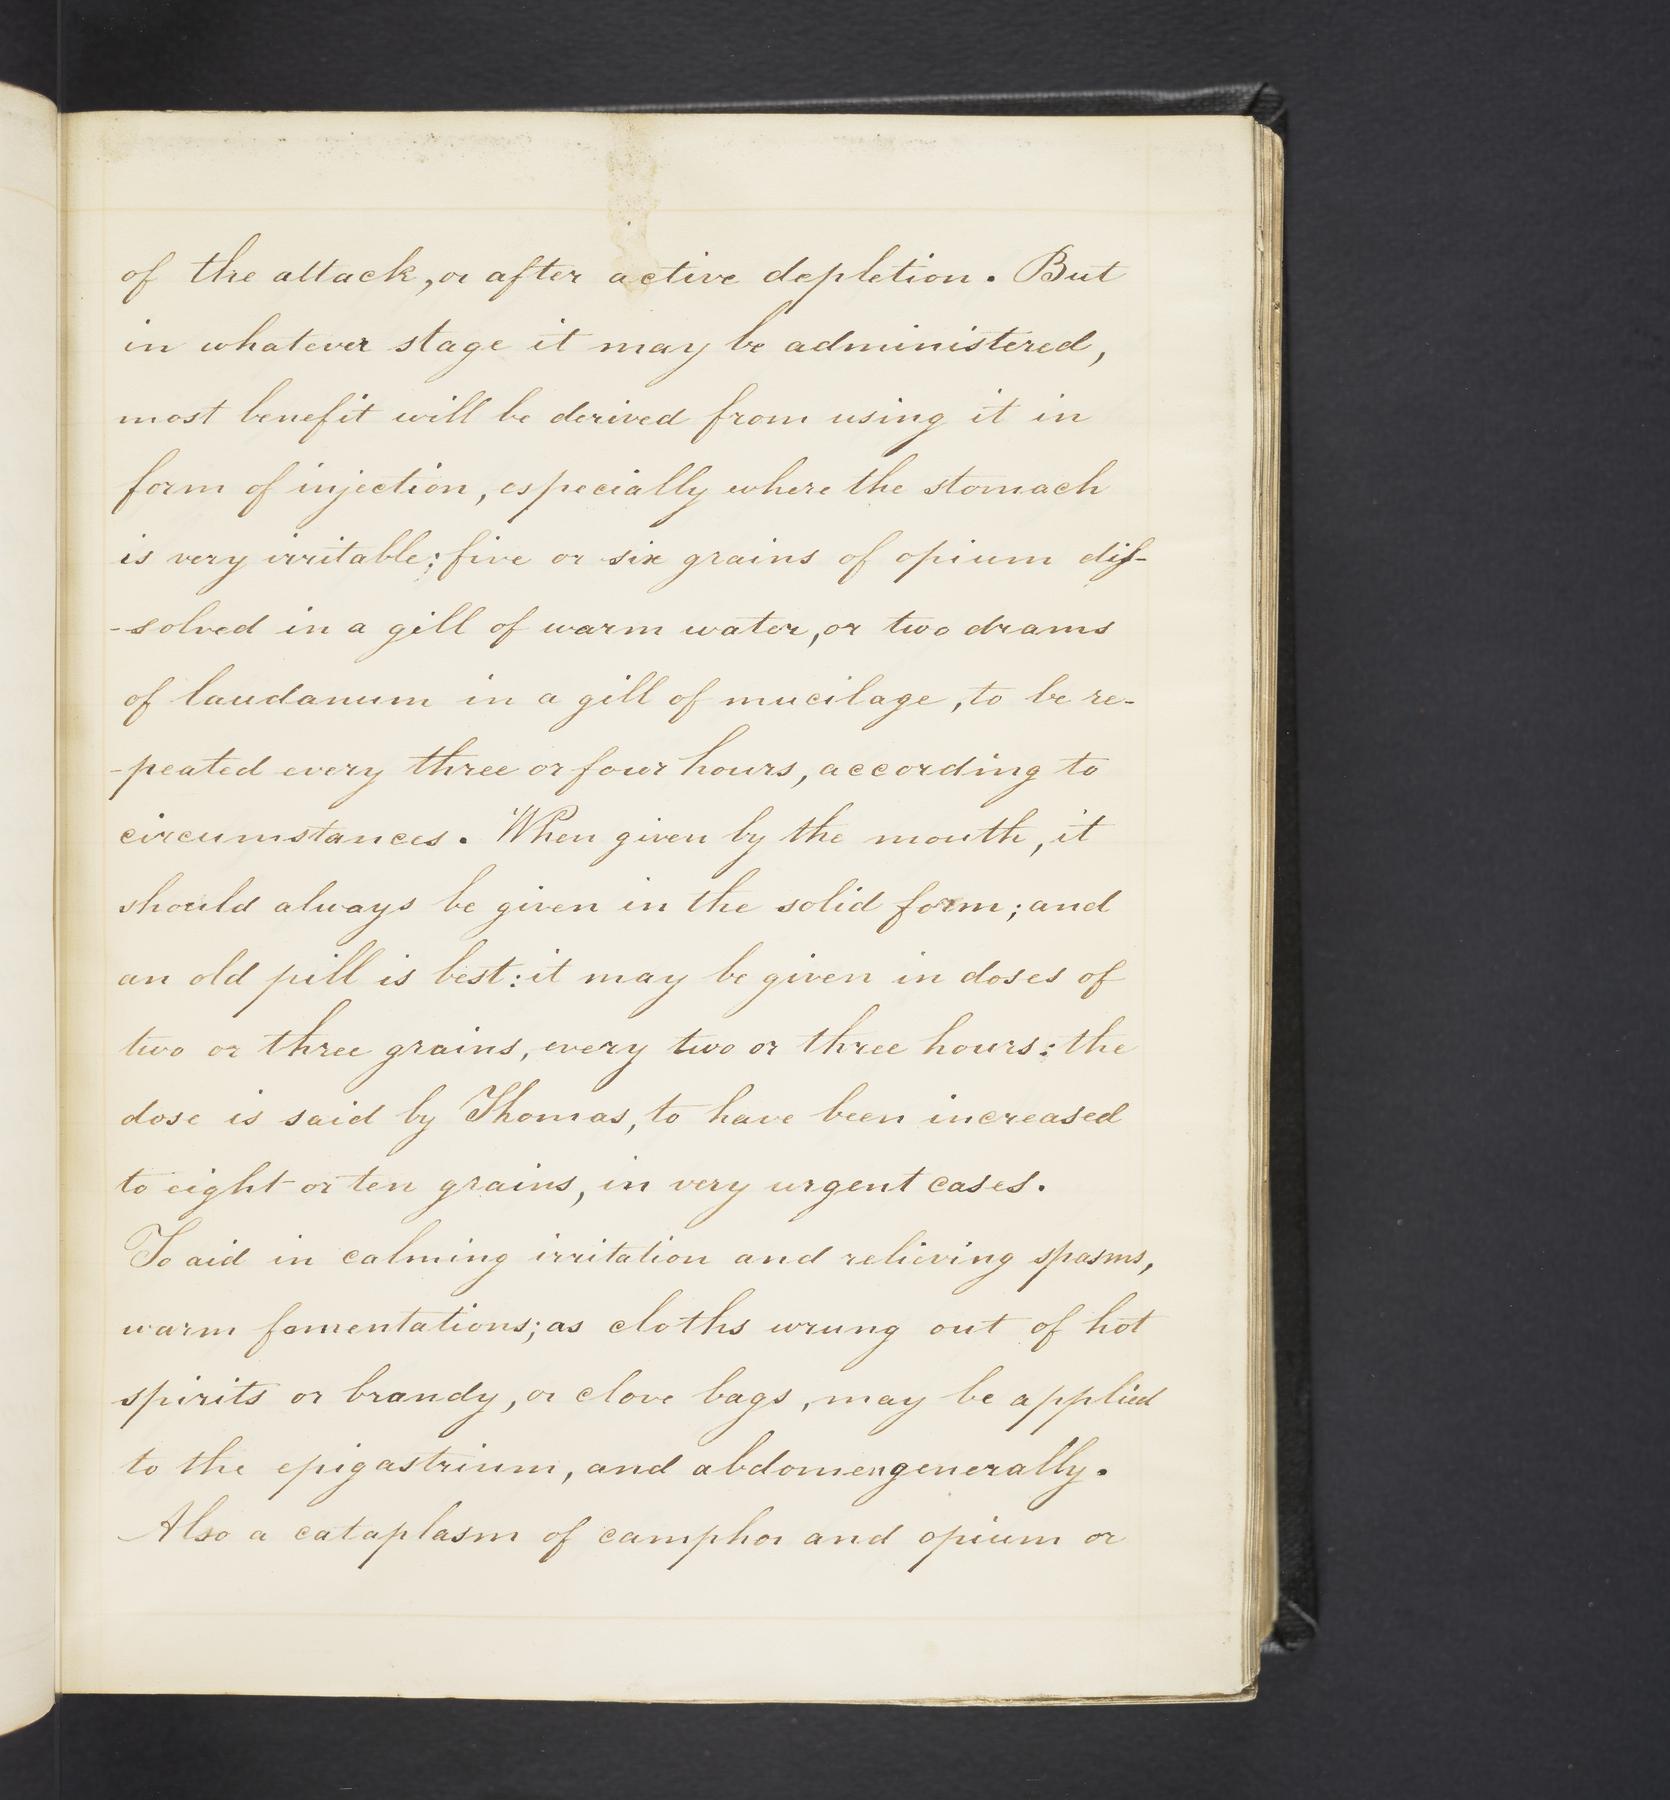 of the attack, or after active depletion. But
in whatever stage it may be administered,
most benefit will be derived from using it in
form of injection, especially where the stomach
is very irritable; five or six grains of opium dis-
-solved in a gill of warm water, or two drams
of laudanum in a gill of mucilage, to be re-
-peated every three or four hours, according to
circumstances. When given by the mouth, it
should always be given in the solid form; and
an old pill is best: it may be given in doses of
two or three grains, every two or three hours: the
dose is said by Thomas, to have been increased
to eight or ten grains, in very urgent cases.
To aid in calming irritation and relieving spasms,
warm fomentations; as cloths wrung out of hot
spirits or brandy, or clove bags, may be applied
to the epigastrium, and abdomen generally.
Also a cataplasm of camphor and opium or